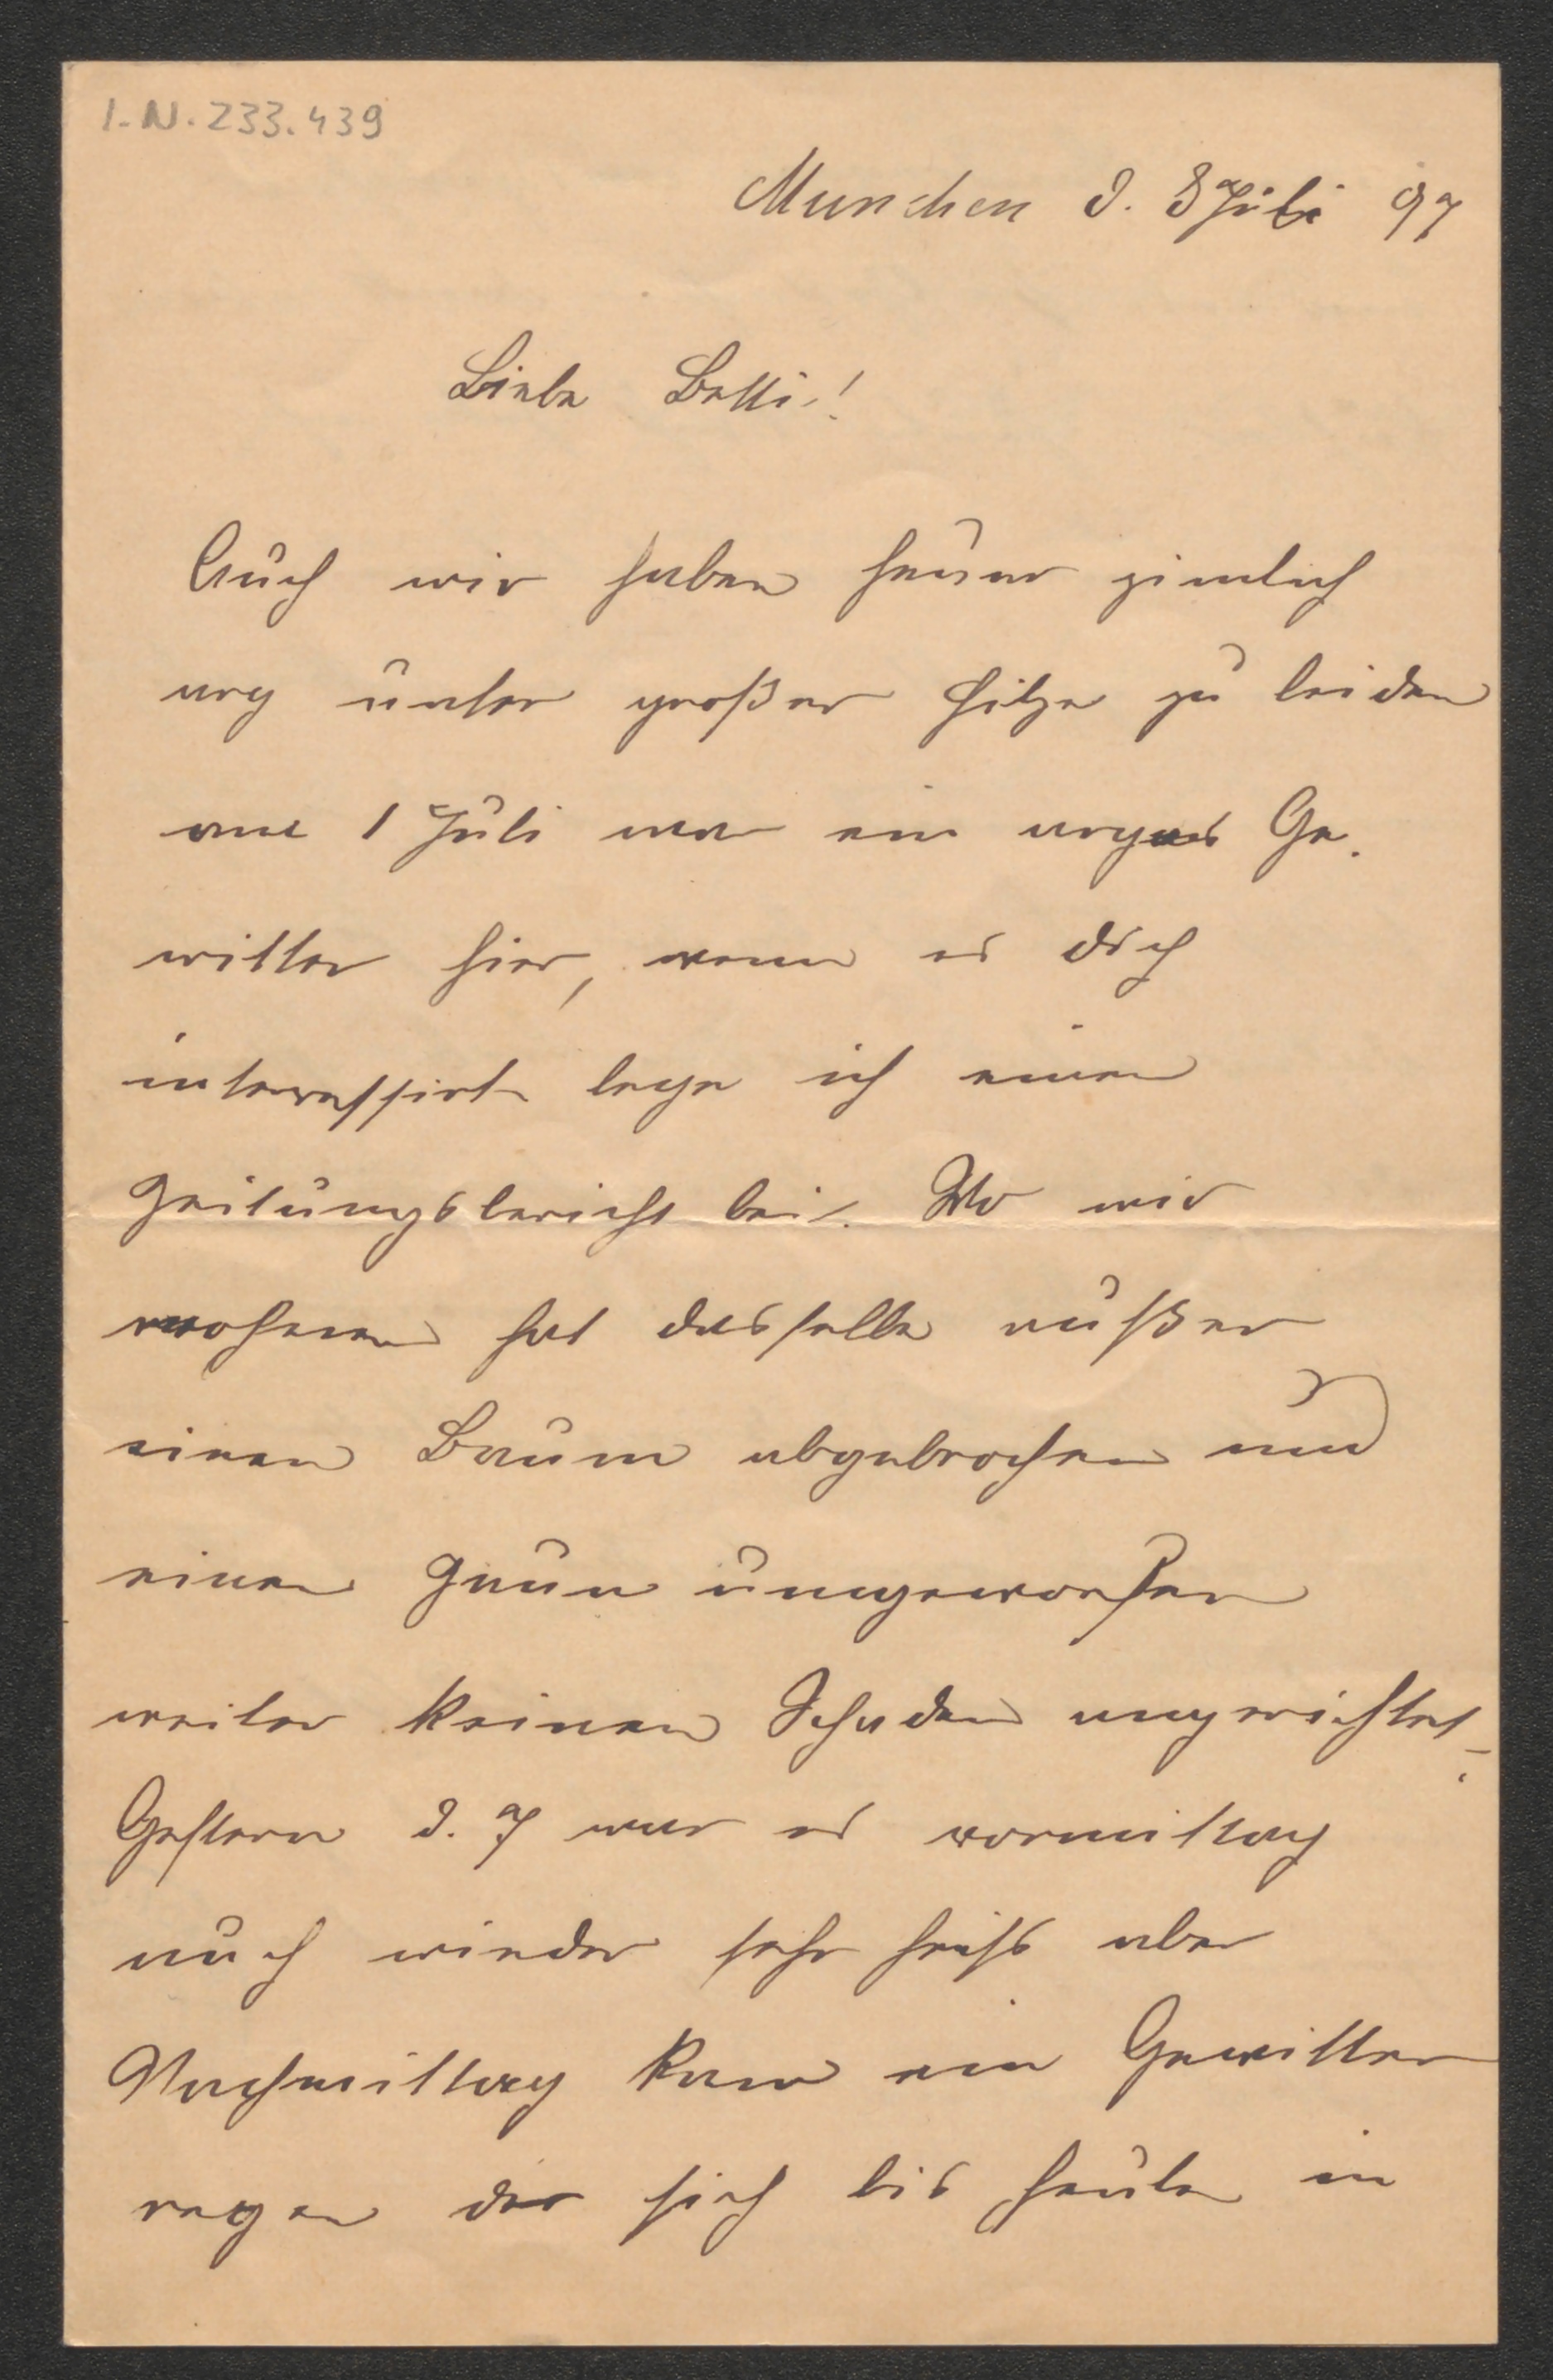 I.N. 233.439
Munchen d. 8 Juli 97
Liebe Betti!
Auch wir haben heuer zimlich
arg unter großer Hitze zu leiden
am 1 Juli war ein arges Ge-
witter hier, wenn es dich
interessirt lege ich einen
Zeitungsbericht bei. Wo wir
wohnen hat dasselbe außer
einen Baum abgebrochen und
einen Zaun umgeworfen
weiter keinen Schaden angerichtet.
Gestern d. 7 war es vormittag
auch wieder sehr heiß aber
Nachmittag kam ein Gewitter
regen der sich bis heute in